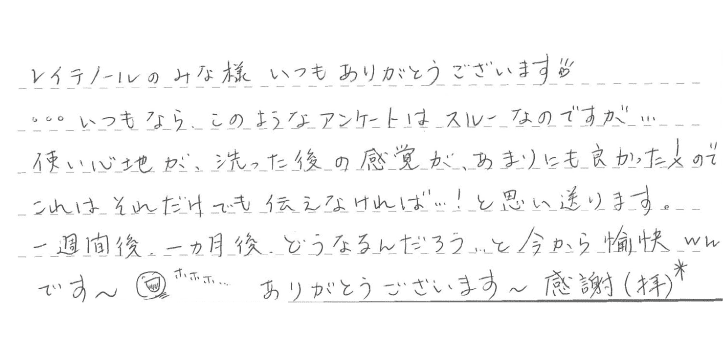 レイテノールのみな様 いつもありがとうございます
…いつもなら、このようなアンケートはスルーなのですが…
使い心地が、洗った後の感覚が、あまりにも良かったので
これはそれだけでも伝えなければ…!と思い送ります。
一週間後、一ヵ月後、どうなるんだろう…と今から愉快ww
です〜 ホホホ… ありがとうございます〜 感謝(拝)*